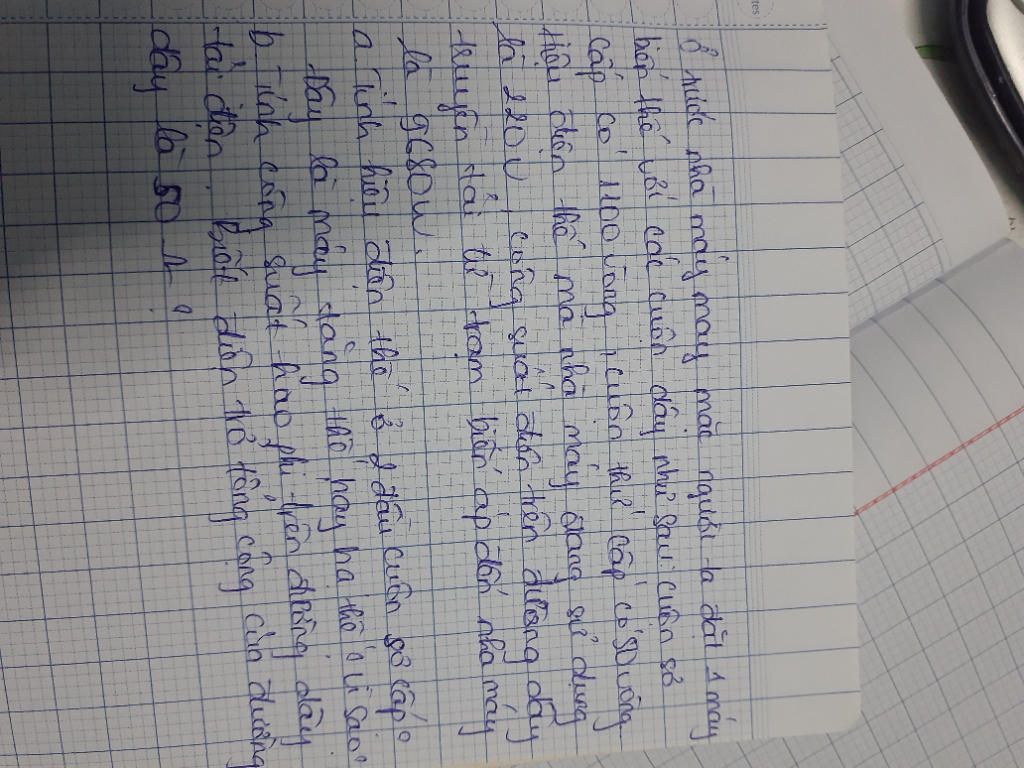 Ở trước nhà máy may mặc người ta đặt 1 máy
biến thế với các cuộn dây như sau: cuộn sơ
cấp có 1100 vòng, cuộn thứ cấp có 50 vòng
Hiệu điện thế mà nhà máy đang sử dụng
là 220V, công suất điện trên đường dây
truyền tải từ trạm biến áp đến nhà máy
là 9680W.
a Tính hiệu điện thế ở 2 đầu cuộn sơ cấp?
Đây là máy tăng thế hay hạ thế? Vì sao?
b - Tính công suất hao phí trên đường dây
tải điện. Biết điện trở tổng cộng của đường
dây là 50 Ω?